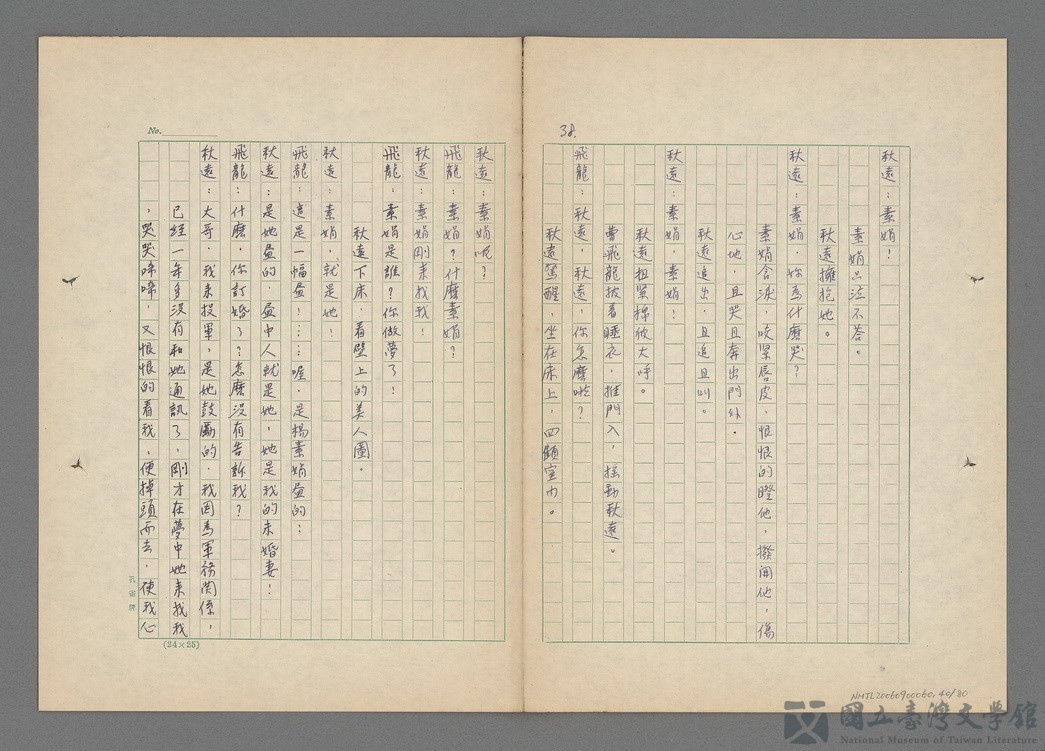 38.
秋遠：素娟！
素娟只泣不答。
秋遠擁抱她。
秋遠：素娟，妳為什麼哭？
素娟含淚，咬緊唇皮，恨恨的瞪他，撥開他，傷
心地，且哭且奔出門外。
秋遠追出，且追且叫。
秋遠：素娟，素娟！
秋遠扭緊棉被大呼。
夢飛龍披着睡衣，推門入，搖動秋遠。
飛龍：秋遠，秋遠，你怎麼啦？
秋遠驚醒，坐在床上，四顧室內。
No.
秋遠：素娟呢？
飛龍：素娟？什麼素娟？
秋遠：素娟剛來找我！
飛龍：素娟是誰？你做夢了！
秋遠下床，看壁上的美人圖。
秋遠：素娟，就是她！
飛龍：這是一幅畫！……喔，是楊素娟畫的！
秋遠：是她畫的，畫中人就是她，她是我的未婚妻！
飛龍：什麼，你訂婚了？怎麼沒有告訴我？
秋遠：大哥，我來投軍，是她鼓勵的，我因為軍務關係，
已經一年多沒有和她通訊了，剛才在夢中她來找我
，哭哭啼啼，又恨恨的看我，便掉頭而去，使我心
孔雀牌
(24×25)
NMTL20060900060, 40/80
國立臺灣文學館
National Museum of Taiwan Literature